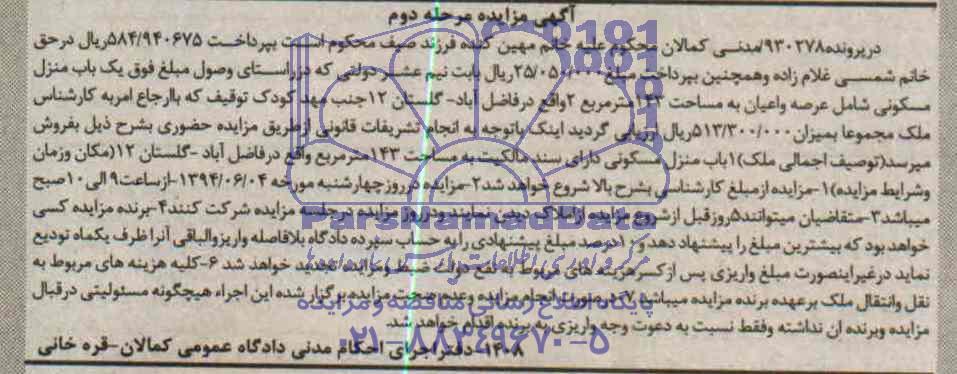 آگهی مزایده مرحله دوم
درپرونده۹۳۰۲۷۸مدنی کمالان محکوم علیه خانم مهین کننده فرزند صیف محکوم است بپرداخت ۵۸۴/۹۴۰۶۷۵ریال درحق
خانم شمسی غلام زاده وهمچنین بپرداخت مبلغ ۲۵/۰۵۰/۰۰۰ریال بابت نیم عشر دولتی که درراستای وصول مبلغ فوق یک باب منزل
مسکونی شامل عرصه واعیان به مساحت ۱۴۳مترمربع ۲واقع درفاضل آباد- گلستان ۱۲جنب مهد کودک توقیف که باارجاع امربه کارشناس
ملک مجموعا بمیزان۵۱۳/۳۰۰/۰۰۰ریال ارزیابی گردید اینک باتوجه به انجام تشریفات قانونی ازطریق مزایده حضوری بشرح ذیل بفروش
میرسد(توصیف اجمالی ملک)۱باب منزل مسکونی دارای سند مالکیت به مساحت ۱۴۳مترمربع واقع درفاضل آباد -گلستان ۱۲(مکان وزمان
وشرایط مزایده)۱-مزایده ازمبلغ کارشناسی بشرح بالا شروع خواهد شد۲-مزایده درروزچهارشنبه مورخه ۱۳۹۴/۰۶/۰۴-ازساعت۹الی۱۰صبح
میباشد۳-متقاضیان میتوانند۵روزقبل ازشروع مزایده ازاملاک دیدن نمایند ودرروز مزایده درجلسه مزایده شرکت کنند۴-برنده مزایده کسی
خواهد بود که بیشترین مبلغ را پیشنهاد دهد و۱۰درصد مبلغ پیشنهادی رابه حساب سپرده دادگاه بلافاصله واریزوالباقی آنرا ظرف یکماه تودیع
نماید درغیراینصورت مبلغ واریزی پس ازکسرهزینه های مربوط به نفع دولت ضبط ومزایده تجدید خواهد شد ۶-کلیه هزینه های مربوط به
نقل وانتقال ملک برعهده برنده مزایده میباشد ۷-درصورت انجام مزایده وعدم صحت مزایده برگزار شده این اجراء هیچگونه مسئولیتی درقبال
مزایده وبرنده ان نداشته وفقط نسبت به دعوت وجه واریزی به برنده اقدام خواهد شد.
۱۴۰۸- دفتر اجرای احکام مدنی دادگاه عمومی کمالان-قره خانی
ParsNamadData
پایگاه اطلاع رسانی مناقصه و مزایده
۰۲۱-۸۸۳۴۹۶۷۰-۵